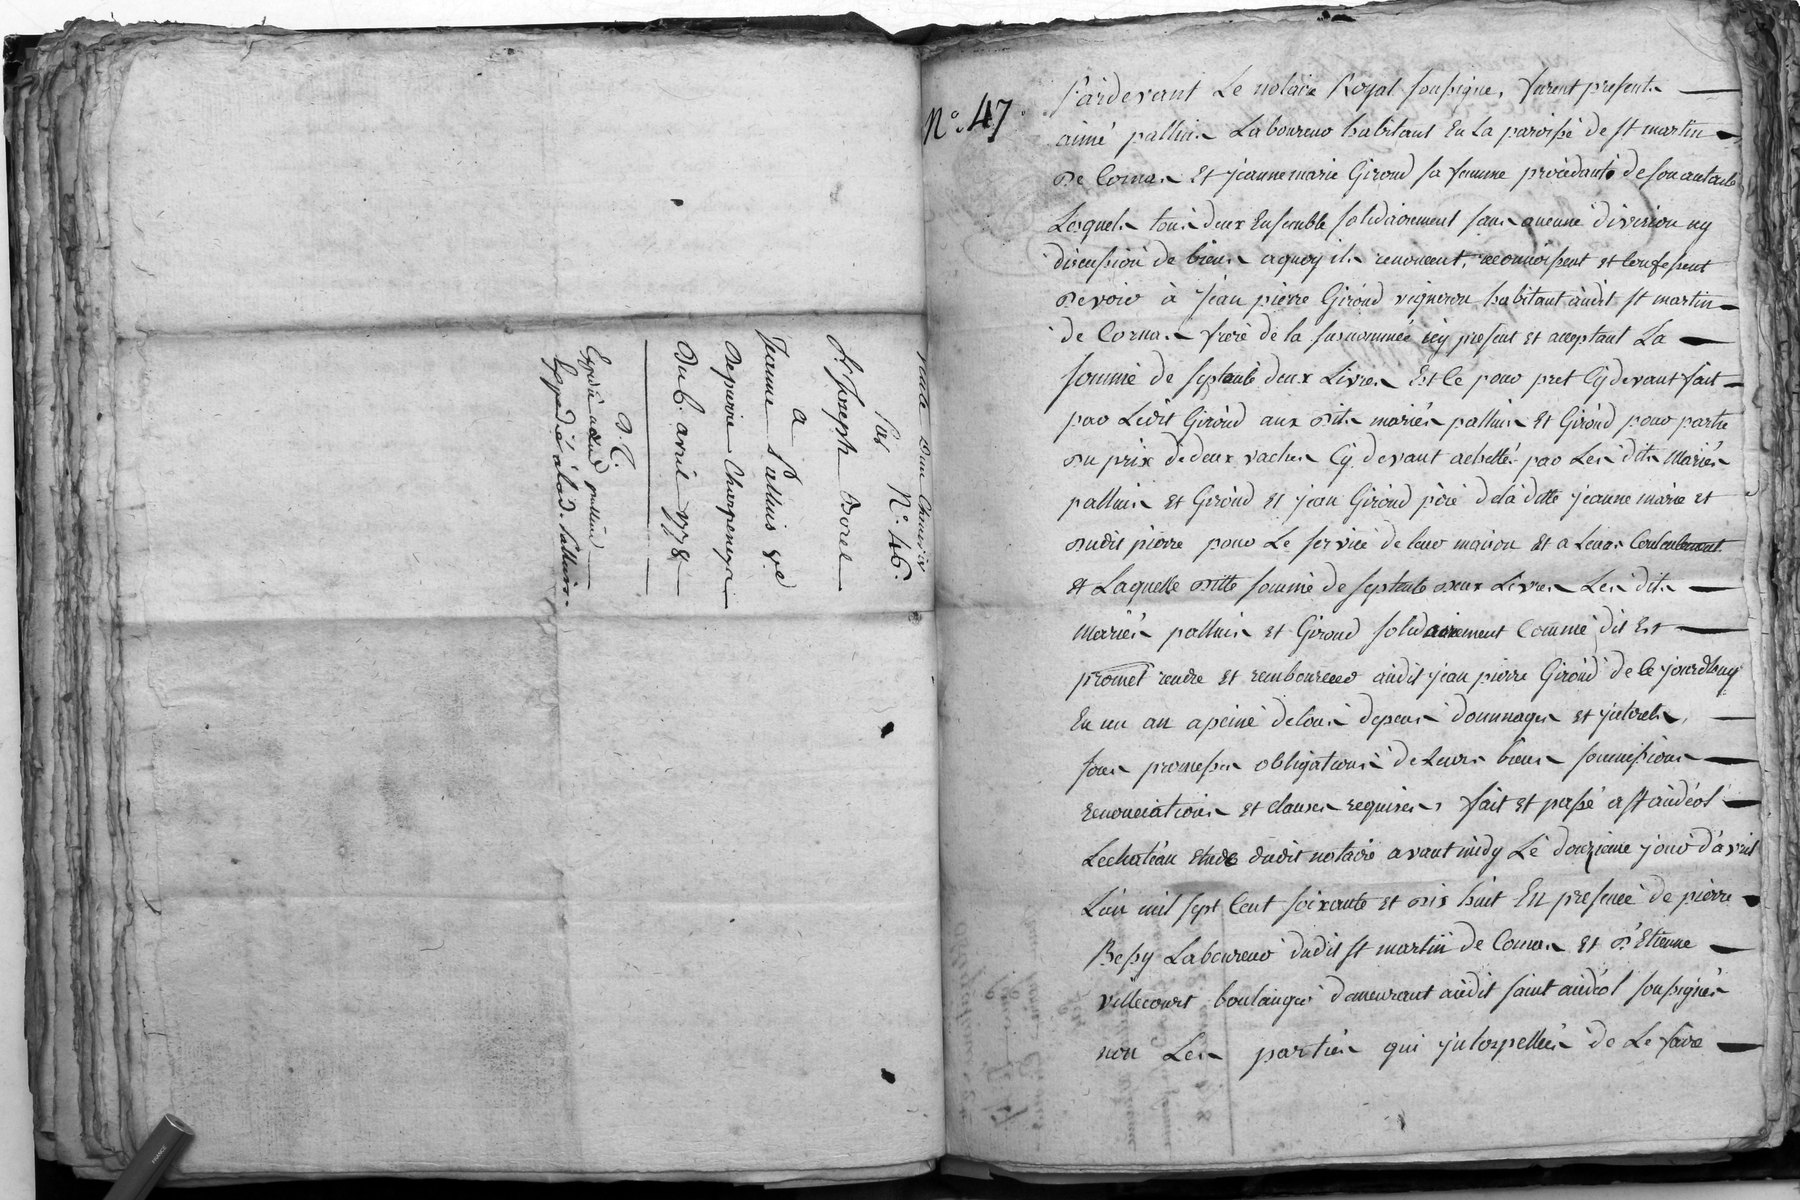 Vente d'une Chenevier
par N.° 46.
Sr. Joseph Borel
a
Jeanne Palluis Ve.
de pierre Charpenaya
du 6. avril 1778
D. C.
Expédié audit palluis
Expédié à lad. Palluis.
N.° 47
Pardevant Le notaire Royal soussigné, furent presents
aimé palluis Laboureur habitant En La paroisse de st martin
De Cornas Et jeanne marie Giroud sa femme procedante de son autorité
Lesquels tous deux Ensemble solidairement sans aucune division ny
discussion de biens aquoy ils renoncent, reconnoissent et confessent
Devoir à Jean pierre Giroud vigneron habitant audit st martin
de Cornas frere de la susnommée icy present et acceptant La
somme de septante deux Livres Et ce pour pret cy devant fait
par Ledit Giroud aux dits mariés palluis Et Giroud pour partie
du prix de deux vaches cy devant achettés par Les dits Mariés
palluis et Giroud et jean Giroud pere de la ditte jeanne marie et
dudit pierre pour Le service de leur maison Et a Leur Contentement
et Laquelle ditte somme de septante deux Livres Les dits
Mariés palluis et Giroud solidairement Comme dit Est
promet rendre et rembourcer audit jean pierre Giroud de ce jourdhuy
En un an a peine de tous depens dommages et jnterets,
sous promesses obligations de Leurs biens soumissions
renonciations et clauses requises, fait et passé a st andéol
Lechatéau Etude dudit notaire avant midy Le douzieme jour d'avril
L'an mil sept Cent soixante et dix huit En presence de pierre
Bessy Laboureur dudit st martin de Cornas et d'Etienne
villecourt boulanger demeurant audit saint andéol soussignés
non Les parties qui jnterpellées de Le faire